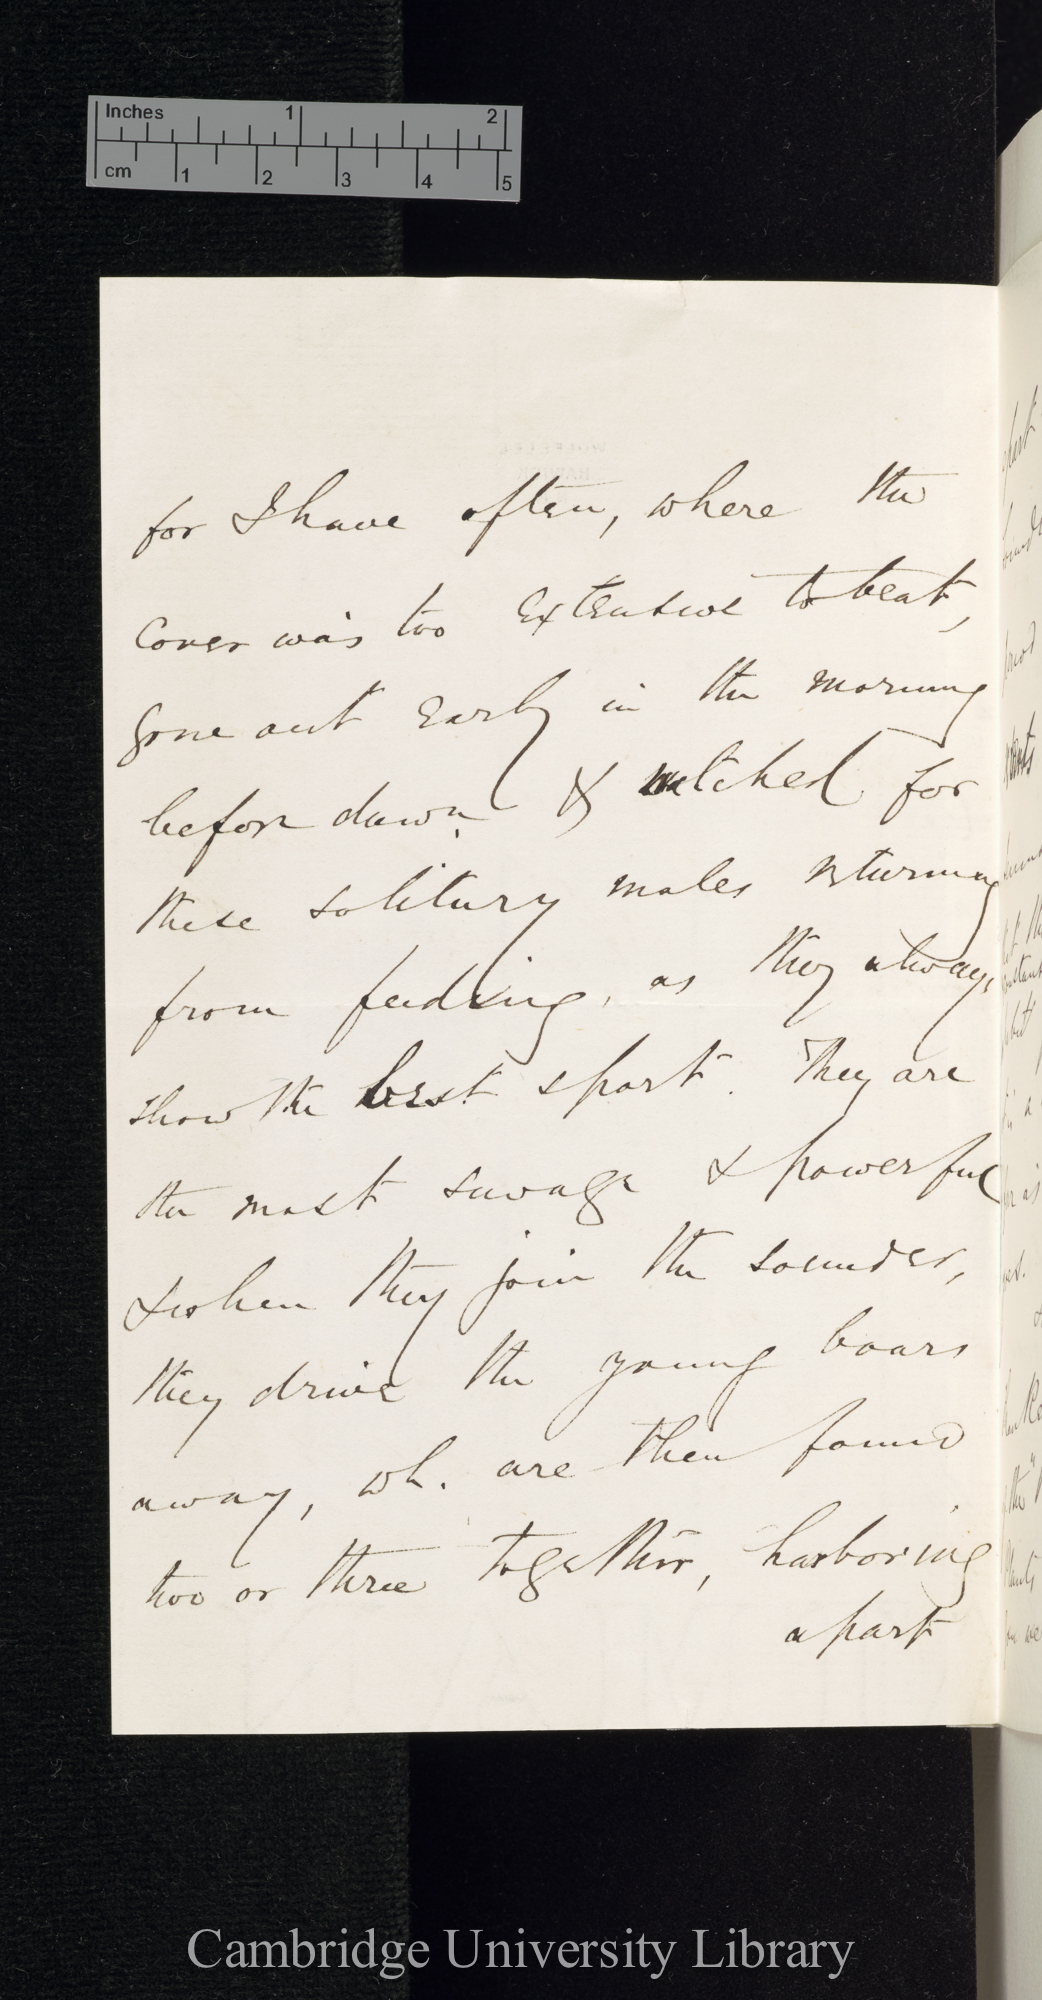 Inches 1 2
cm 1 2 3 4 5
for I have often, where the
cover was too extensive to beat,
gone out early in the morning
before dawn & watched for
these solitary males returning
from feeding, as they always
show the best sport. They are
the most savage & powerful
& when they join the sounder,
they drive the young boars
away, wh. are then found
two or three together, harboring
apart
Cambridge University Library